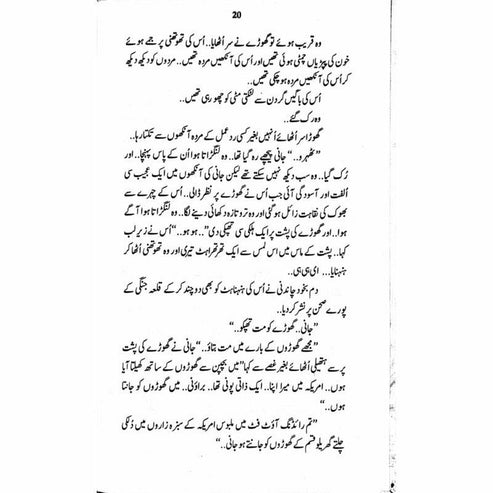 20
وہ قریب ہوئے تو گھوڑے نے سر اُٹھایا.. اُس کی تھوتھنی پر جمے ہوئے
خون کی پپڑیاں چمٹی ہوئی تھیں اور اُس کی آنکھیں مردہ تھیں.. مردوں کو دیکھ دیکھ
کر اُس کی آنکھیں مردہ ہو چکی تھیں..
اُس کی باگیں گردن سے لٹکتی مٹی کو چھو رہی تھیں..
وہ رک گئے..
گھوڑا سر اُٹھائے اُنہیں بغیر کسی ردِعمل کے مردہ آنکھوں سے تکتا رہا..
”ٹھہرو..“ جانی پیچھے رہ گیا تھا.. وہ لنگڑاتا ہوا اُن کے پاس پہنچا.. اور
رُک گیا.. وہ سب دیکھ نہیں سکتے تھے لیکن جانی کی آنکھوں میں ایک عجیب سی
اُلفت اور آسودگی آئی جب اُس نے گھوڑے پر نظر ڈالی.. اُس کے چہرے سے
بھوک کی نقاہت زائل ہو گئی اور وہ تروتازہ دکھائی دینے لگا.. وہ لنگڑاتا ہوا آگے
ہوا.. اور گھوڑے کی پشت پر ایک ہلکی سی تھپکی دی ”.. ہو ہو..“ اُس نے زیرِلب
کہا.. پشت کے ماس میں اس لمس سے ایک تھرتھراہٹ تیری اور وہ تھوتھنی اُٹھا کر
ہنہنایا... ای ہی ہی..
دم بخود چاندنی نے اُس کی ہنہناہٹ کو بھی دوچند کر کے قلعہ جنگی کے
پورے صحن پر نشر کر دیا..
”جانی.. گھوڑے کو مت تھپکو..“
”مجھے گھوڑوں کے بارے میں مت بتاؤ..“ جانی نے گھوڑے کی پشت
پر سے ہتھیلی اُٹھائے بغیر غصے سے کہا ”میں بچپن سے گھوڑوں کے ساتھ کھیلتا آیا
ہوں.. امریکہ میں میرا اپنا.. ایک ذاتی پونی تھا.. براؤنی.. میں گھوڑوں کو جانتا
ہوں..“
”تم رائڈنگ آؤٹ فٹ میں ملبوس امریکہ کے سبزہ زاروں میں دُلکی
چلتے گھریلو قسم کے گھوڑوں کو جانتے ہو جانی..“